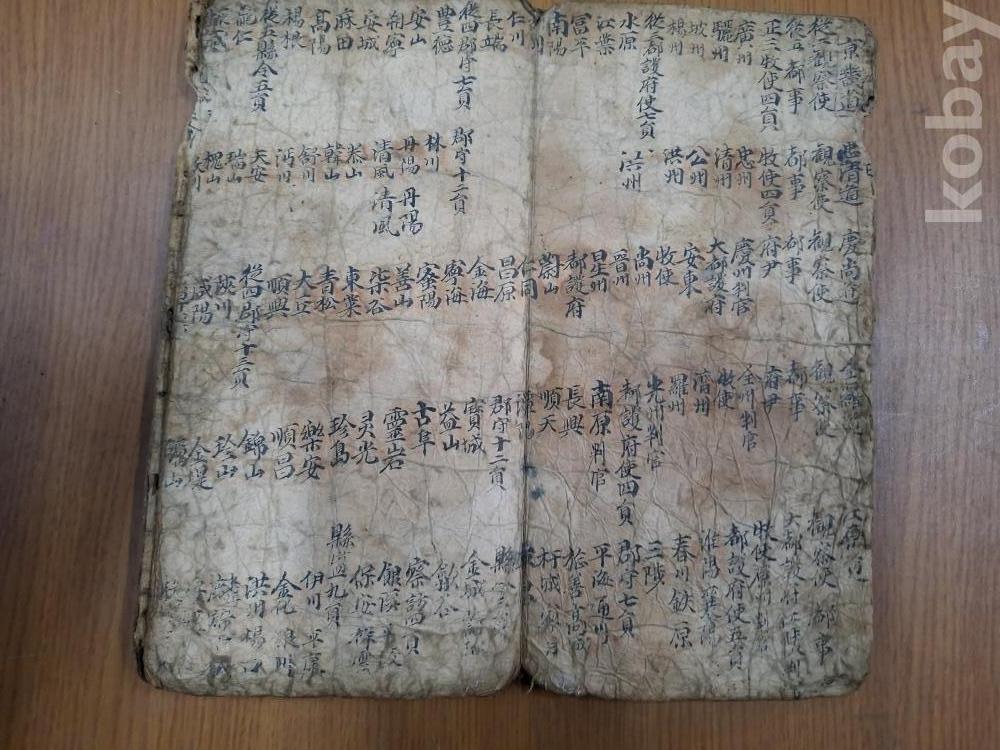 京畿道
從二觀察使
從五都事
正三牧使四員
廣州
驪州
坡州
楊州
從三都護府使七員
水原
江華
富平
南陽
仁川
長端
從四郡守七員
豊德
安山
朔寧
安城
麻田
高陽
楊根
從五縣令五員
龍仁
忠清道
觀察使
都事
牧使四員
忠州
清州
公州
洪州
洪州
郡守十二員
林川
丹陽 丹陽
清風 清風
泰山
韓山
舒川
沔川
天安
瑞山
槐山
沃川
慶尚道
觀察使
都事
府尹
慶州判官
大都護府
安東
牧使
尚州
晉州
星州
都護府
蔚山
仁同
昌原
金海
寧海
密陽
善山
柒谷
東萊
青松
大丘
順興
從四郡守十三員
陜川
咸陽
全羅道
觀察使
都事
府尹
全州判官
牧使
濟州
羅州
光州判官
都護府使四員
南原判官
長興
順天
潭陽
郡守十二員
寶城
益山
古阜
靈岩
灵光
珍島
樂安
順昌
錦山
珍山
金堤
江原道
觀察使 都事
牧使原州判官
都護府使五員
淮陽 襄陽
春川 鉄原
三陟
郡守七員
平海 通川
旌善 高城
杆城
金城
察訪四員
銀溪
保安 祥雲
縣監九員
伊川 平康
金化 狼川
洪川 楊口
kobay